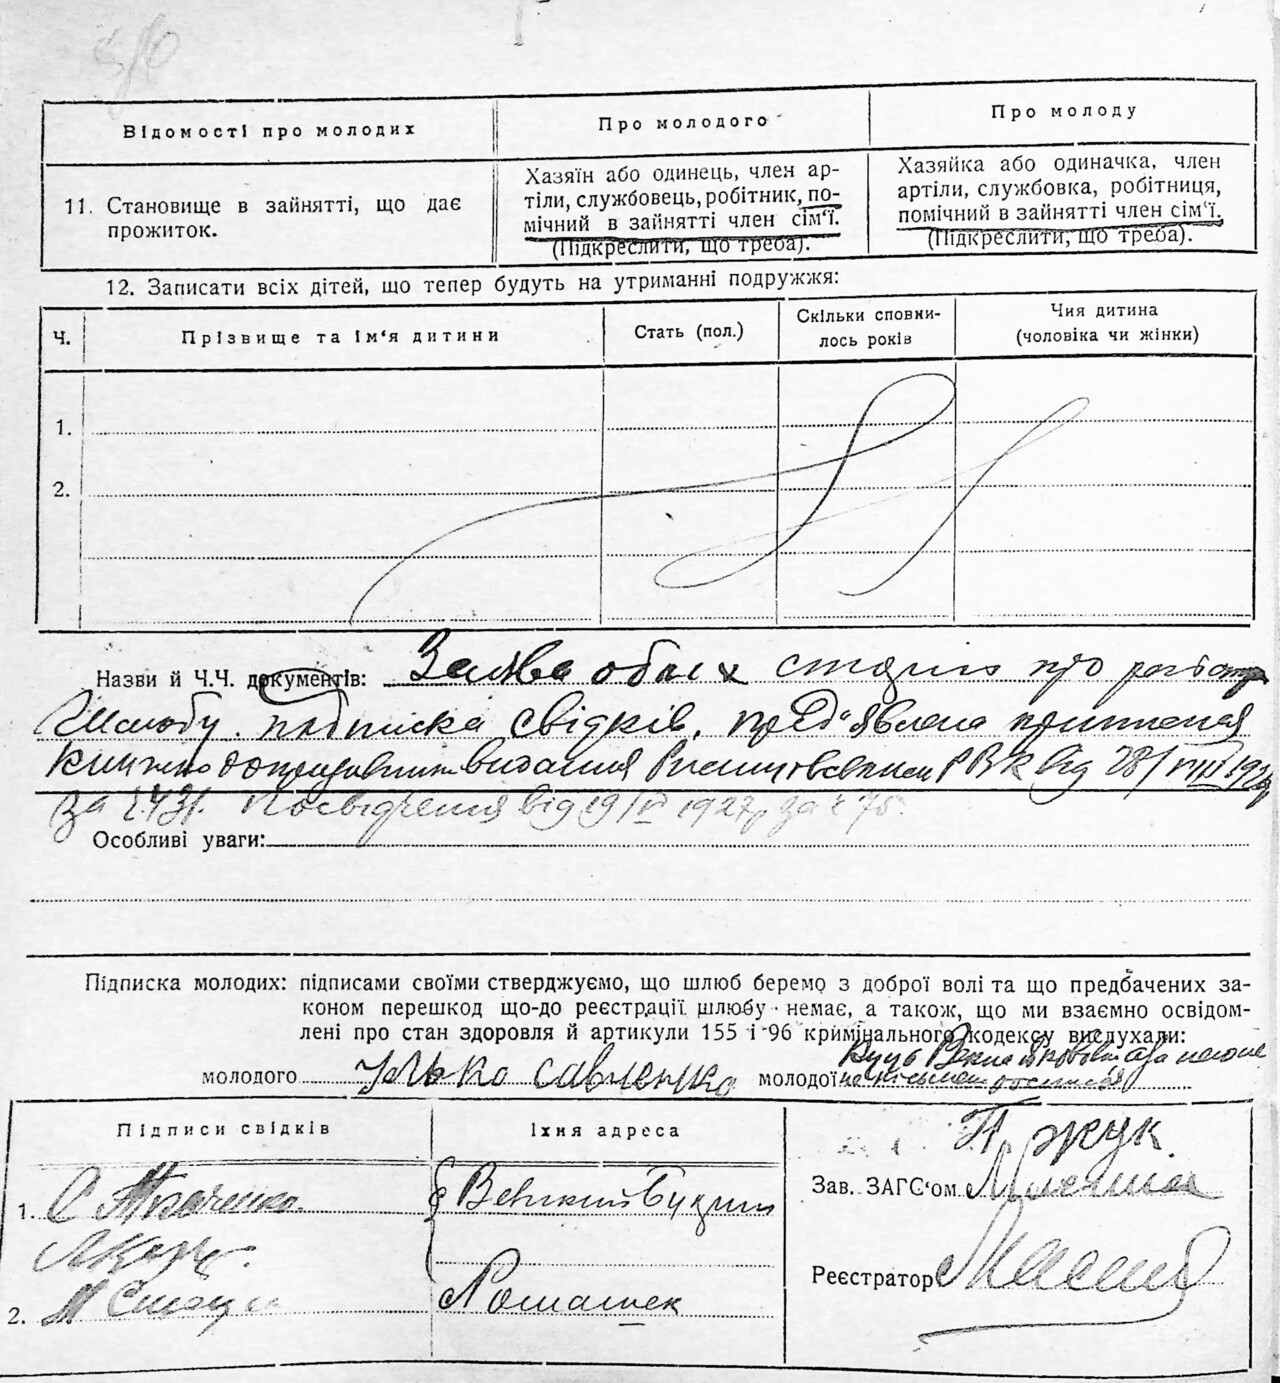 Відомості про молодих
Про молодого
Про молоду
11. Становище в зайнятті, що дає
прожиток.
Хазяїн або одинець, член ар-
тіли, службовець, робітник, по-
мічний в зайнятті член сім'ї.
(Підкреслити, що треба).
Хазяйка або одиначка, член
артіли, службовка, робітниця,
помічний в зайнятті член сім'ї.
(Підкреслити, що треба).
12. Записати всіх дітей, що тепер будуть на утриманні подружжя:
Ч.
Прізвище та ім'я дитини
Стать (пол.)
Скільки сповни-
лось років
Чия дитина
(чоловіка чи жінки)
1.
2.
Назви й Ч.Ч. документів: Заява обоих сторін про
шлюбу. підписка свідків, пред'явлена
видання РВК від 28/VIII 192
за ч. 431. Посвідчення від 19/ 1927 р за ч 75.
Особливі уваги:
Підписка молодих: підписами своїми стверджуємо, що шлюб беремо з доброї волі та що предбачених за-
коном перешкод що-до реєстрації шлюбу немає, а також, що ми взаємно освідом-
лені про стан здоровля й артикули 155 і 96 кримінального кодексу вислухали:
молодого Улько савченко молодої
Підписи свідків
Їхня адреса
П Жук
1. С Ткаченко
Великий Бузин
Зав. ЗАГС'ом
Реєстратор
2.
Ромашек